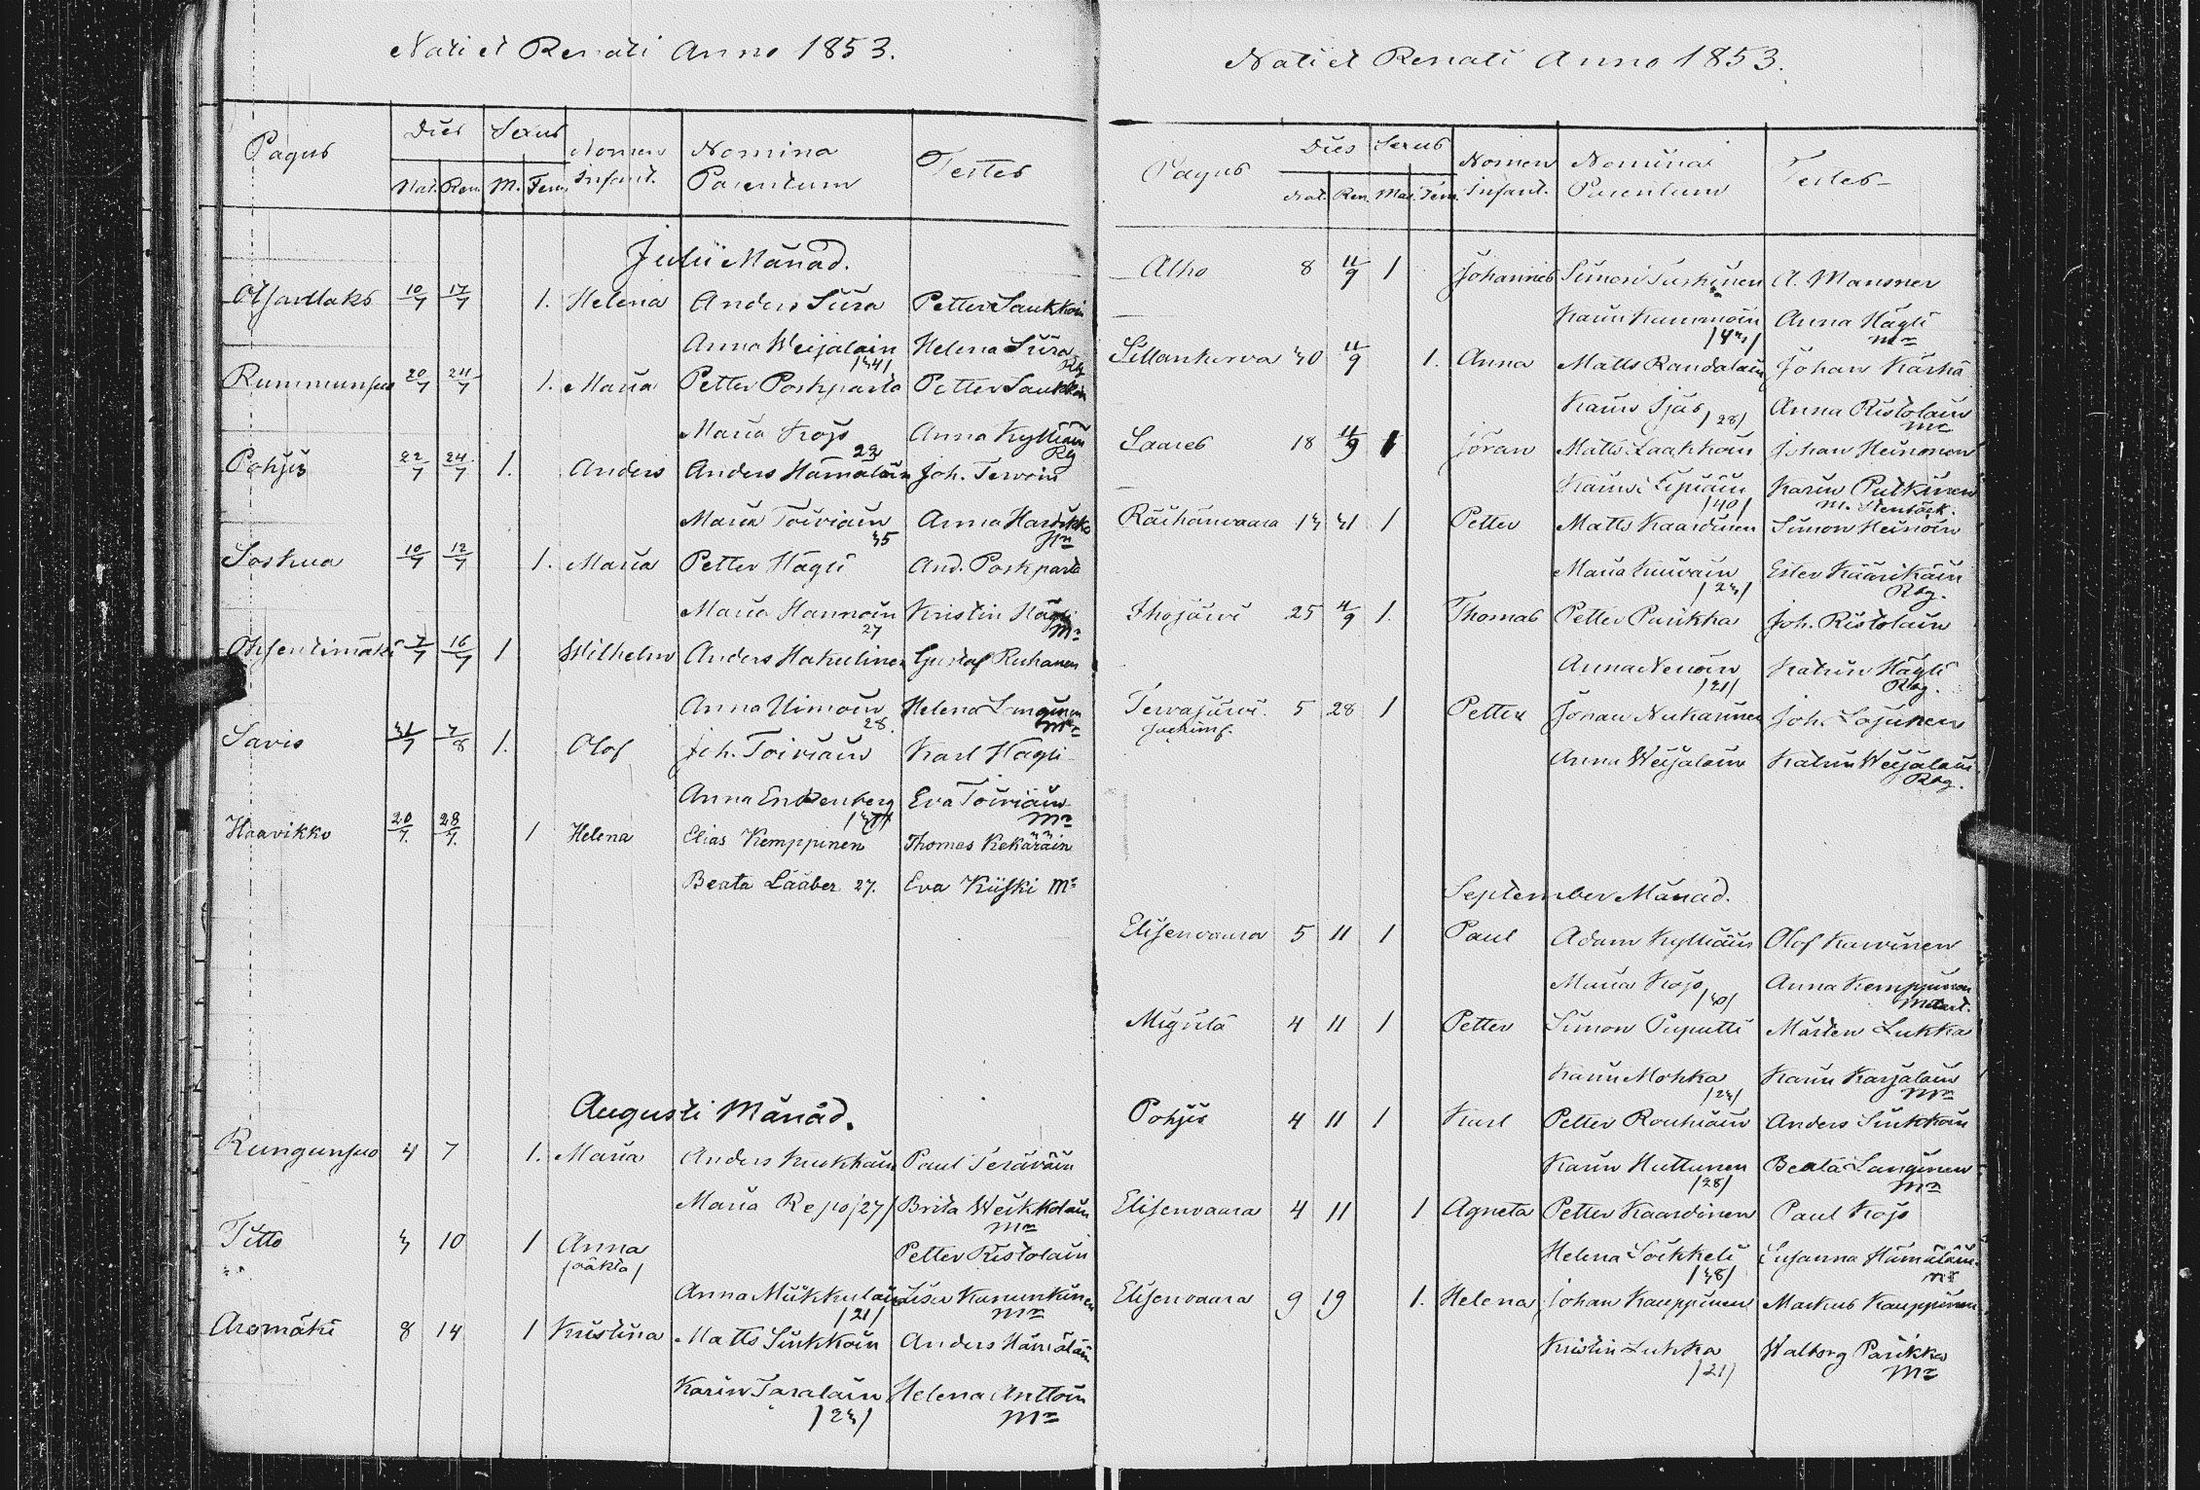 Nati et Renati Anno 1853.
Pagus Dies Sexus Nomen Infant. Nomina Parentum Testes
Nat. Ren. M. Fem.
Julii Månad.
10/7 17/7 1. Helena Anders Siira Petter Saukkoin
Anna Weijalain Helena Siira
Rummunsuo 20/7 24/7 1. Maria Petter Poskiparta Petter Saukkoin
Maria Kojo Anna Kylliäin
22 Rg
Pohjis 22/7 24/7 1. Anders Anders Hämäläin Joh. Terwoin
Maria Toiviain Anna Harikko
35
Soskua 10/7 12/7 1. Maria Petter Hägli And. Poskiparta
Maria Hannoin Kristin Hägli
27 Mr
7/7 16/7 1 Wilhelm Anders Hakulinen Gustaf Ruhanen
Anna Uimoin Helena
28. Mr
Savis 31/7 7/8 1. Olof Joh. Toiviain Karl Hägli
Anna Enckenberg Eva Toiviain
Mr
Haavikko 20/7 28/7 1 Helena Elias Kemppinen Thomas Kekäräin
Beata Lääber 27. Eva Kiiski Mr
Augusti Månad.
Rungunsuo 4 7 1. Maria Anders Kukkain Paul Teräväin
Maria Repo /27/ Brita Weikkolain
Mr
Titto 3 10 1 Anna Petter Ristolain
/oäkta/
Anna Mükkuläin Lisa Kanunkinen
/21/ Mr
Aromäki 8 14 1 Kristina Matts Sinkkoin Anders Hämäläin
Karin Taralain Helena Anttoin
/23/ Mr
Nati et Renati Anno 1853.
Pagus Dies Sexus Nomen Infant. Nomina Parentum Testes
Nat. Ren. Mas. Fem.
Alho 8 11/9 1 Johannes Simon A. Mansner
Karin Kummoin Anna Hägli
Mr
Sillankorva 30 11/9 1. Anna Matts Randalain Johan Kärhä
Karin Sjös Anna Ristolain
/28/ Mr
Saares 18 11/9 1 Jöran Matts Laakkoin Johan Heinonen
Karin Putkinen
/40/
Räihänvaara 13 31 1 Petter Matts Kaardinen Simon Heinoin
Maria Ester Käärikäin
/23/ Rbg.
Ihojärvi 25 4/9 1. Thomas Petter Parikka Joh. Ristolain
Anna Nenoin Katrin Hägli
/21/ Rbg.
Tervajärvi 5 28 1 Petter Johan Nukarinen Joh. Lojunen
Anna Weijalain Katrin Weijalain
Rbg.
September Månad.
Elisenvaara 5 11 1 Paul Adam Kylliäin Olof Karvinen
Maria Kojo Anna Kemppinen
/30/
Migula 4 11 1 Petter Simon Puputti Mårten Lukka
Karin Mohka Karin Karjalain
/23/ Mr
Pohjis 4 11 1 Karl Petter Rouhiain Anders Sinkkoin
Karin Huttunen Beata Langinen
/28/ Mr
Elisenvaara 4 11 1 Agneta Petter Kaardinen Paul Kojo
Helena Soikkeli Susanna Hämäläin
/38/ Mr
Elisenvaara 9 19 1. Helena Johan Kauppinen Markus Kauppinen
Kristin Lukka Walborg Parikka
/21/ Mr